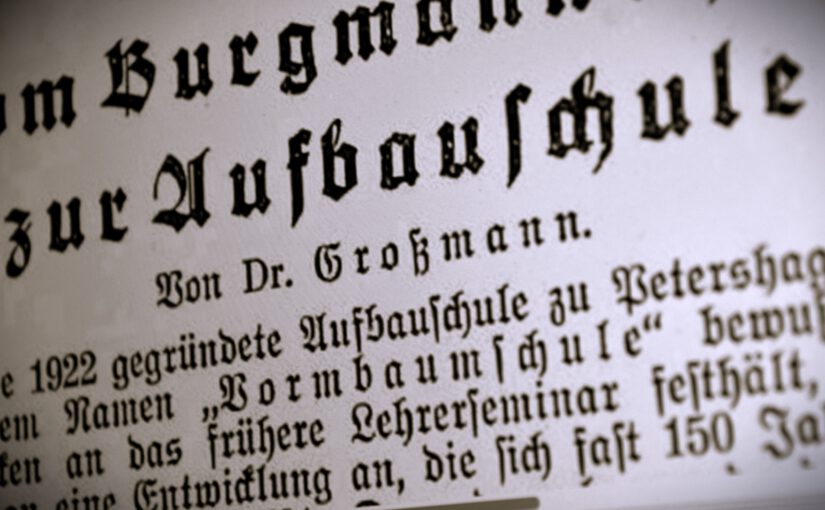 Burgmann
zur Aufbauschule
Von Dr. Großmann.
e 1922 gegründete Aufbauschule zu Petershag
em Namen „Vormbaumschule“ bewuß
ken an das frühere Lehrerseminar festhält,
eine Entwicklung an, die sich fast 150 Ja